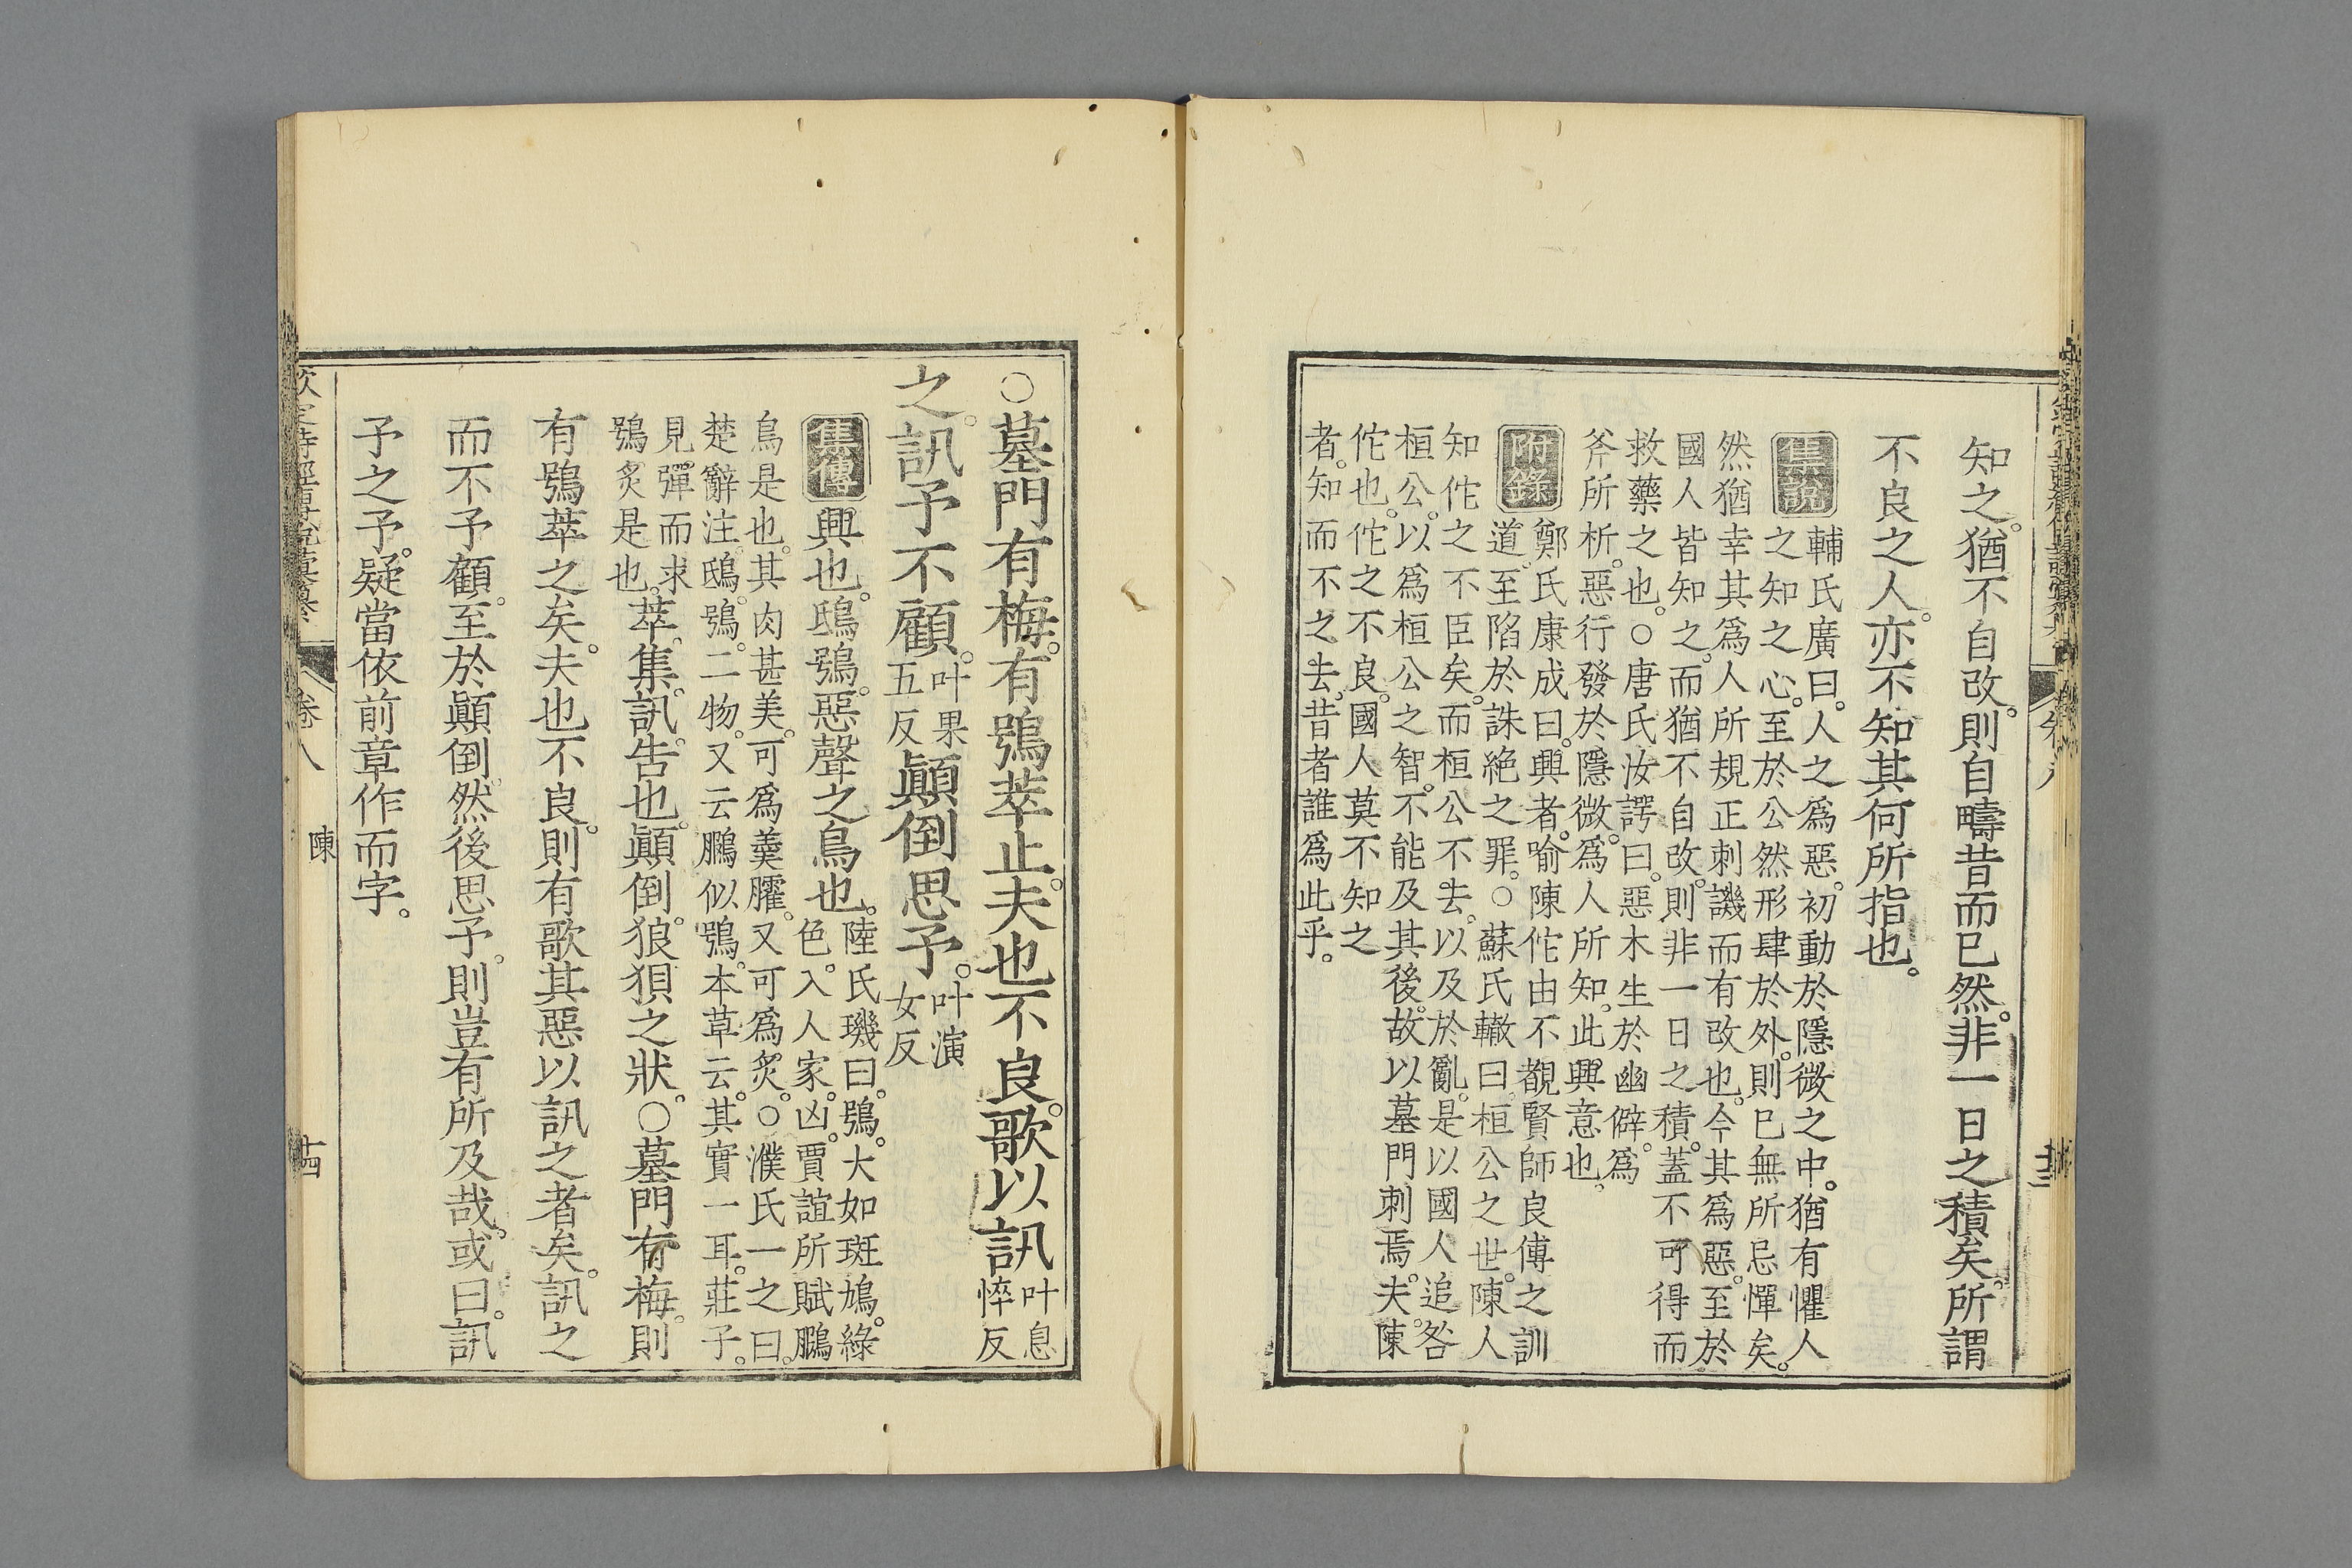 知之。猶不自改。則自疇昔而已然。非一日之積矣。所謂
不良之人。亦不知其何所指也。
集說
輔氏廣曰。人之爲惡。初動於隱微之中。猶有懼人
之知之心。至於公然形肆於外。則已無所忌憚矣。
然猶幸其爲人所規正刺譏而有改也。今其爲惡。至於
國人皆知之。而猶不自改。則非一日之積。蓋不可得而
救藥之也。○唐氏汝諤曰。惡木生於幽僻。爲
斧所析。惡行發於隱微。爲人所知。此興意也。
附錄
鄭氏康成曰。興者。喻陳佗由不覩賢師良傅之訓
道。至陷於誅絶之罪。○蘇氏轍曰。桓公之世。陳人
知佗之不臣矣。而桓公不去。以及於亂。是以國人追咎
桓公。以爲桓公之智。不能及其後。故以墓門刺焉。夫。陳
佗也。佗之不良。國人莫不知之
者。知而不之去。昔者誰爲此乎。
○墓門有梅。有鴞萃止。夫也不良。歌以訊叶息悴反
之。訊予不顧。叶果五反顚倒思予。叶演女反
集傳
興也。鴟鴞。惡聲之鳥也。陸氏璣曰。鴞。大如斑鳩。綠
色。入人家。凶。賈誼所賦鵩
鳥是也。其肉甚美。可爲羹臛。又可爲炙。○濮氏一之曰。
楚辭注。鴟。鴞。二物。又云鵩似鴞。本草云。其實一耳。莊子。
見彈而求
鴞炙是也。萃。集。訊。告也。顚倒。狼狽之狀。○墓門有梅。則
有鴞萃之矣。夫也不良。則有歌其惡以訊之者矣。訊之
而不予顧。至於顚倒。然後思予。則豈有所及哉。或曰。訊
予之予。疑當依前章作而字。
卷八
陳
十四